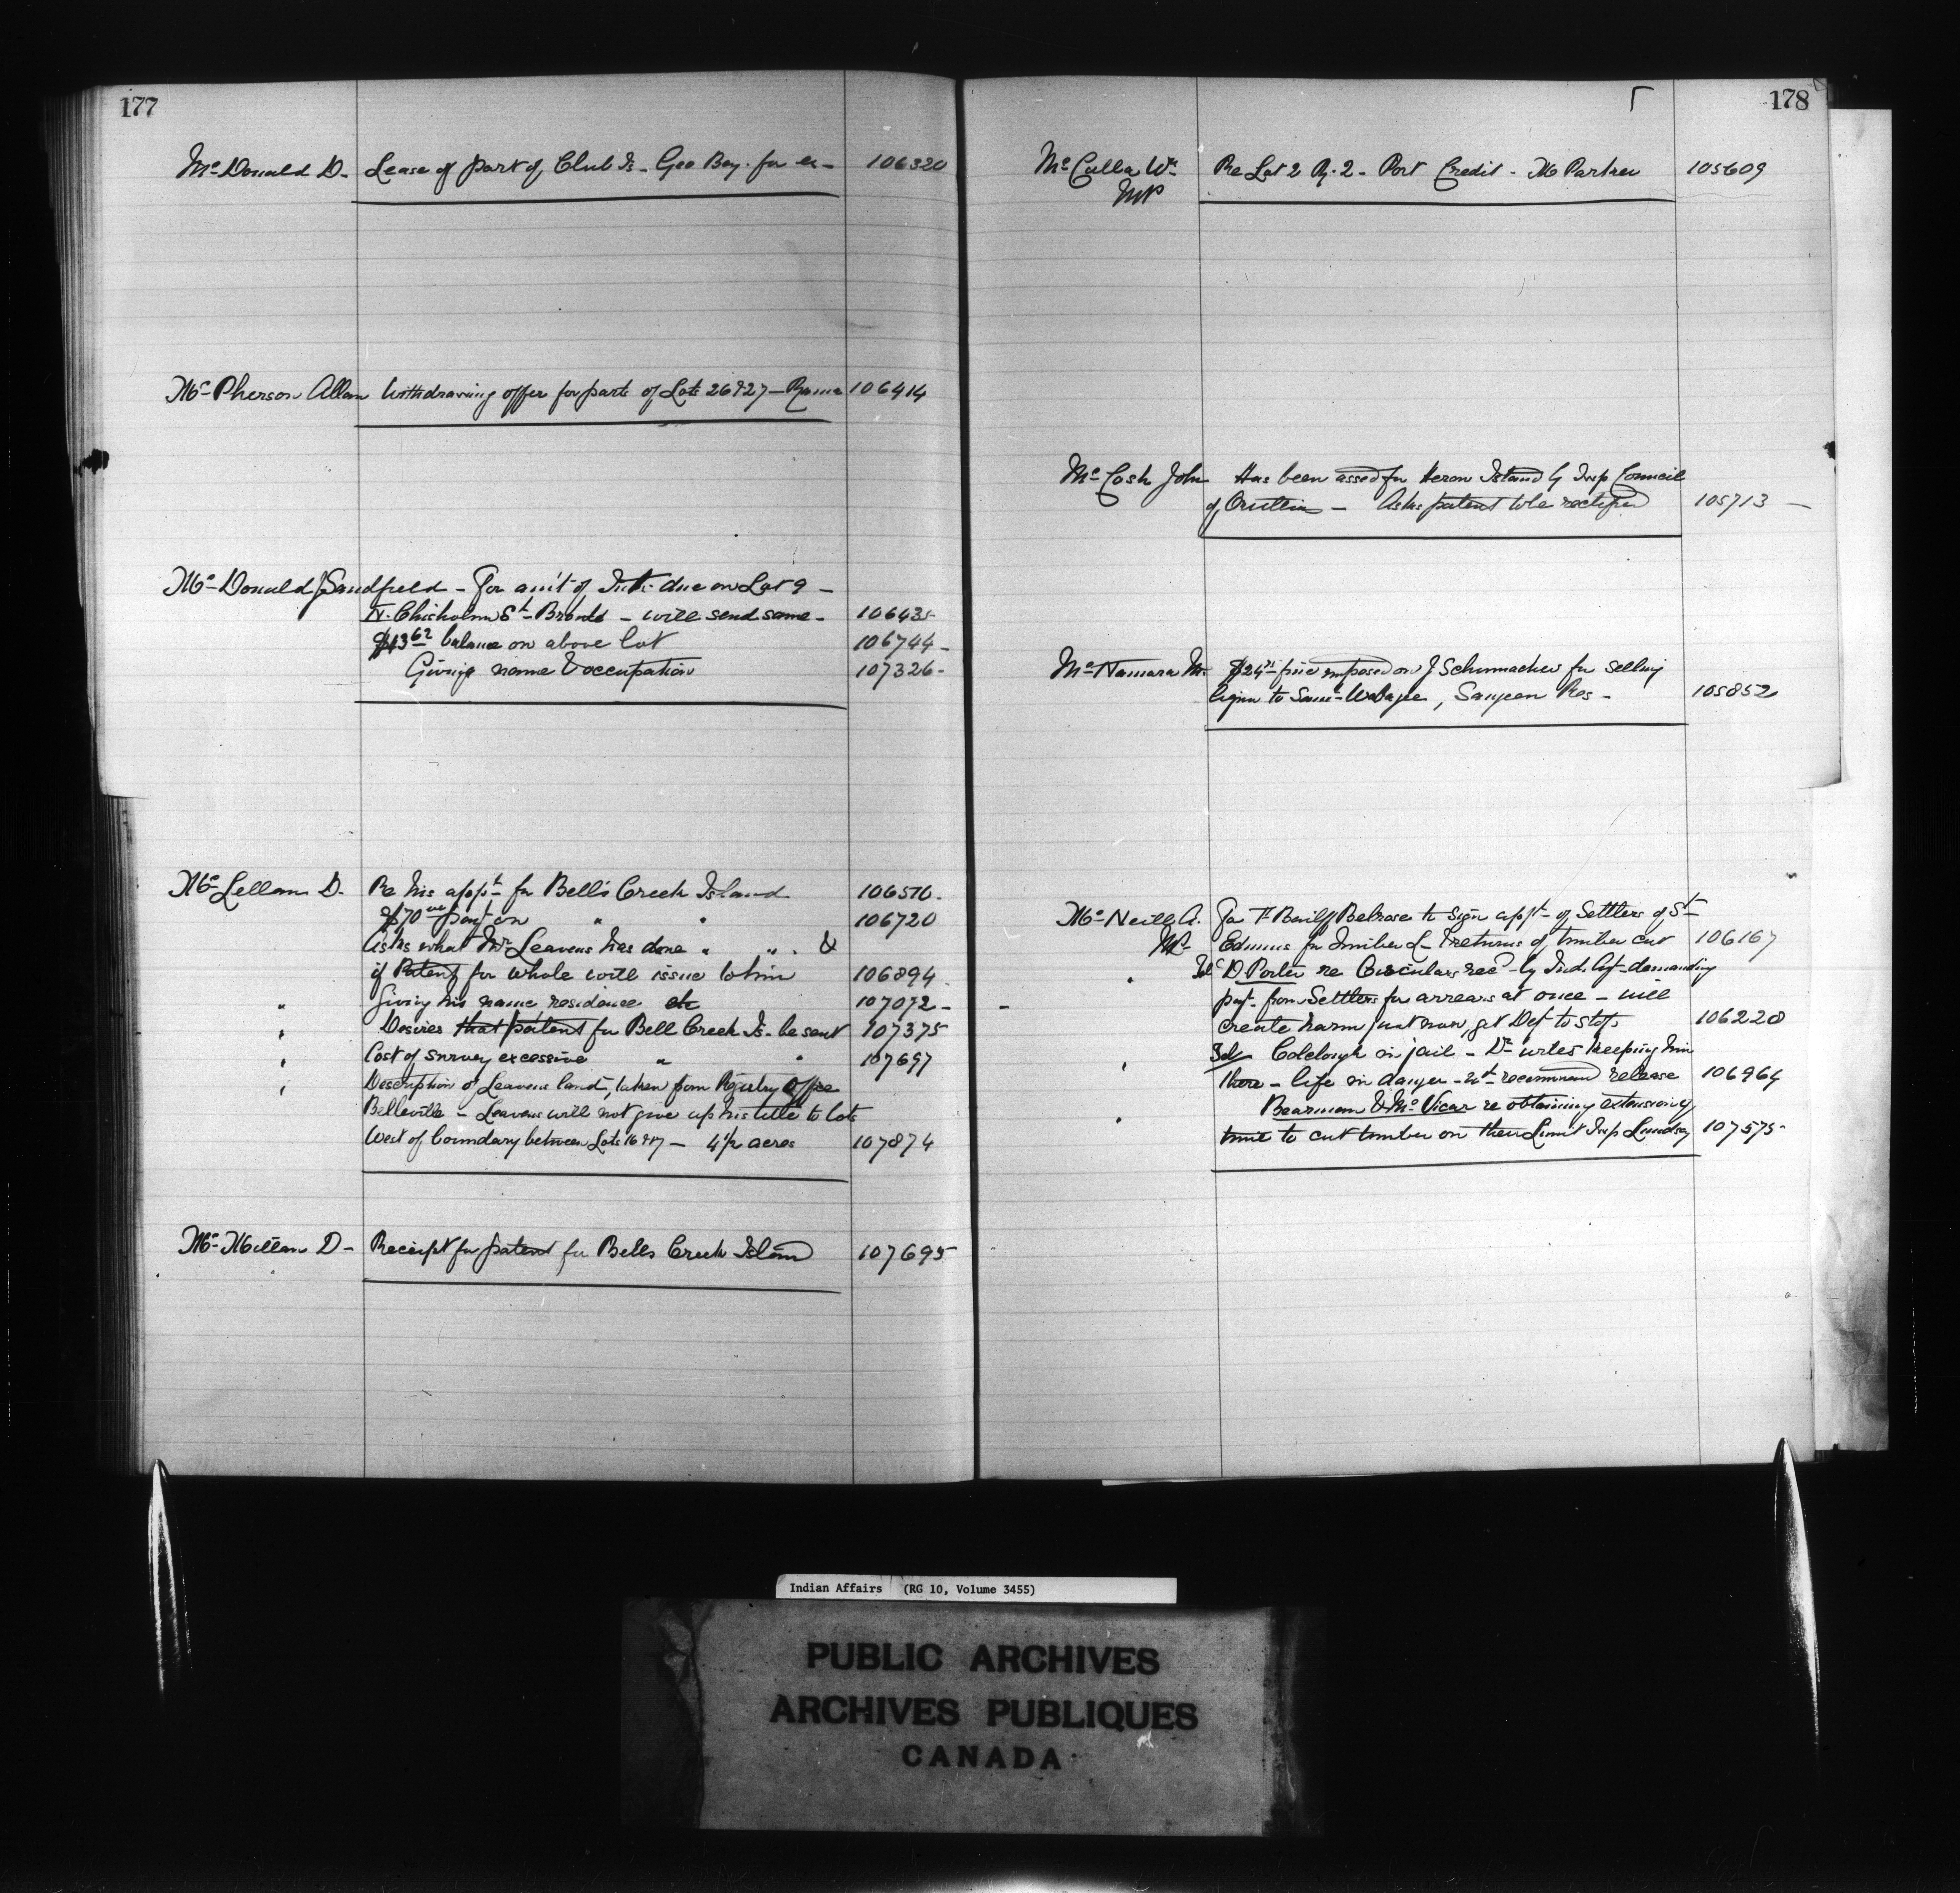 177
Mc Donald D. Lease of part of Club Is. Geo Bay. for ex— 106320
Mc Pherson Allan Withdrawing offer for parts of Lots 26 & 27 — Rama 106414
Mc Donald J Sandfield — For am't of Int. due on Lot 9 —
N. Chisholm St. Bronte — will send same — 106435
$13 62 balance on above lot 106744 —
Giving name & occupation 107326 —
Mc Lellan D. Re his appt. for Bell's Creek Island 106510.
$70 00 payt on " " 106720
Asks what Mr Leavens has done " " . &
if Patent for whole will issue to him 106894
" Giving his name residence etc 107072 —
" Desires that patent for Bell Creek Is. be sent 107375
" Cost of survey excessive " " 107697
" Description of Leavens land, taken from Registry Office
Belleville — Leavens will not give up his title to lots
West of boundary between Lots 16 & 17 — 4½ acres 107874
Mc Millan D — Receipt for patent for Bells Creek Island 107695
178
Mc Culla Wm Re Lot 2 R. 2 — Port Credit — 105609
MP
Mc Cosh John Has been assed for Heron Island by Twp Council
of Orillia — Asks patent to be rectified 105713 —
Mc Namara M. $24 fine imposed on J Schumacher for selling
liquor to Saml Wabagee, Saugeen Res — 105852
Mc Neill A. For F. Belrose to sign appt. of Settlers of St
MP. Edmunds for timber L— & returns of timber cut 106167
" Tel D. Porter re Circulars recd by Ind. Agt demanding
payt. from Settlers for arrears at once — will
create harm just now, get Dept to stop 106228
" Tel Colclough in jail — Dr writes keeping him
there — life in danger — wd. recommend release 106964
" Bearman & Mc Vicar re obtaining extension of
time to cut timber on their Limit Twp Lindsay 107575
Indian Affairs (RG 10, Volume 3455)
PUBLIC ARCHIVES
ARCHIVES PUBLIQUES
CANADA